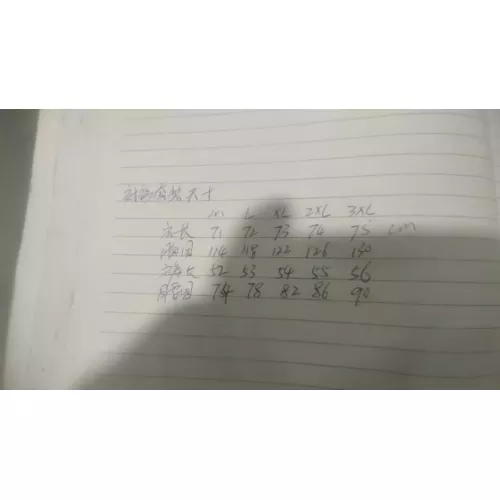 服装尺寸
M L XL 2XL 3XL
衣长 71 72 73 74 75 cm
胸围 114 118 122 126 130
裤长 52 53 54 55 56
腰围 74 78 82 86 90